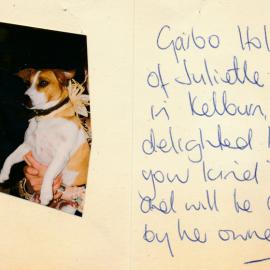 Garbo Hol
of Juliette
in Kelburn,
delighted
your kind
and will be
by her owne